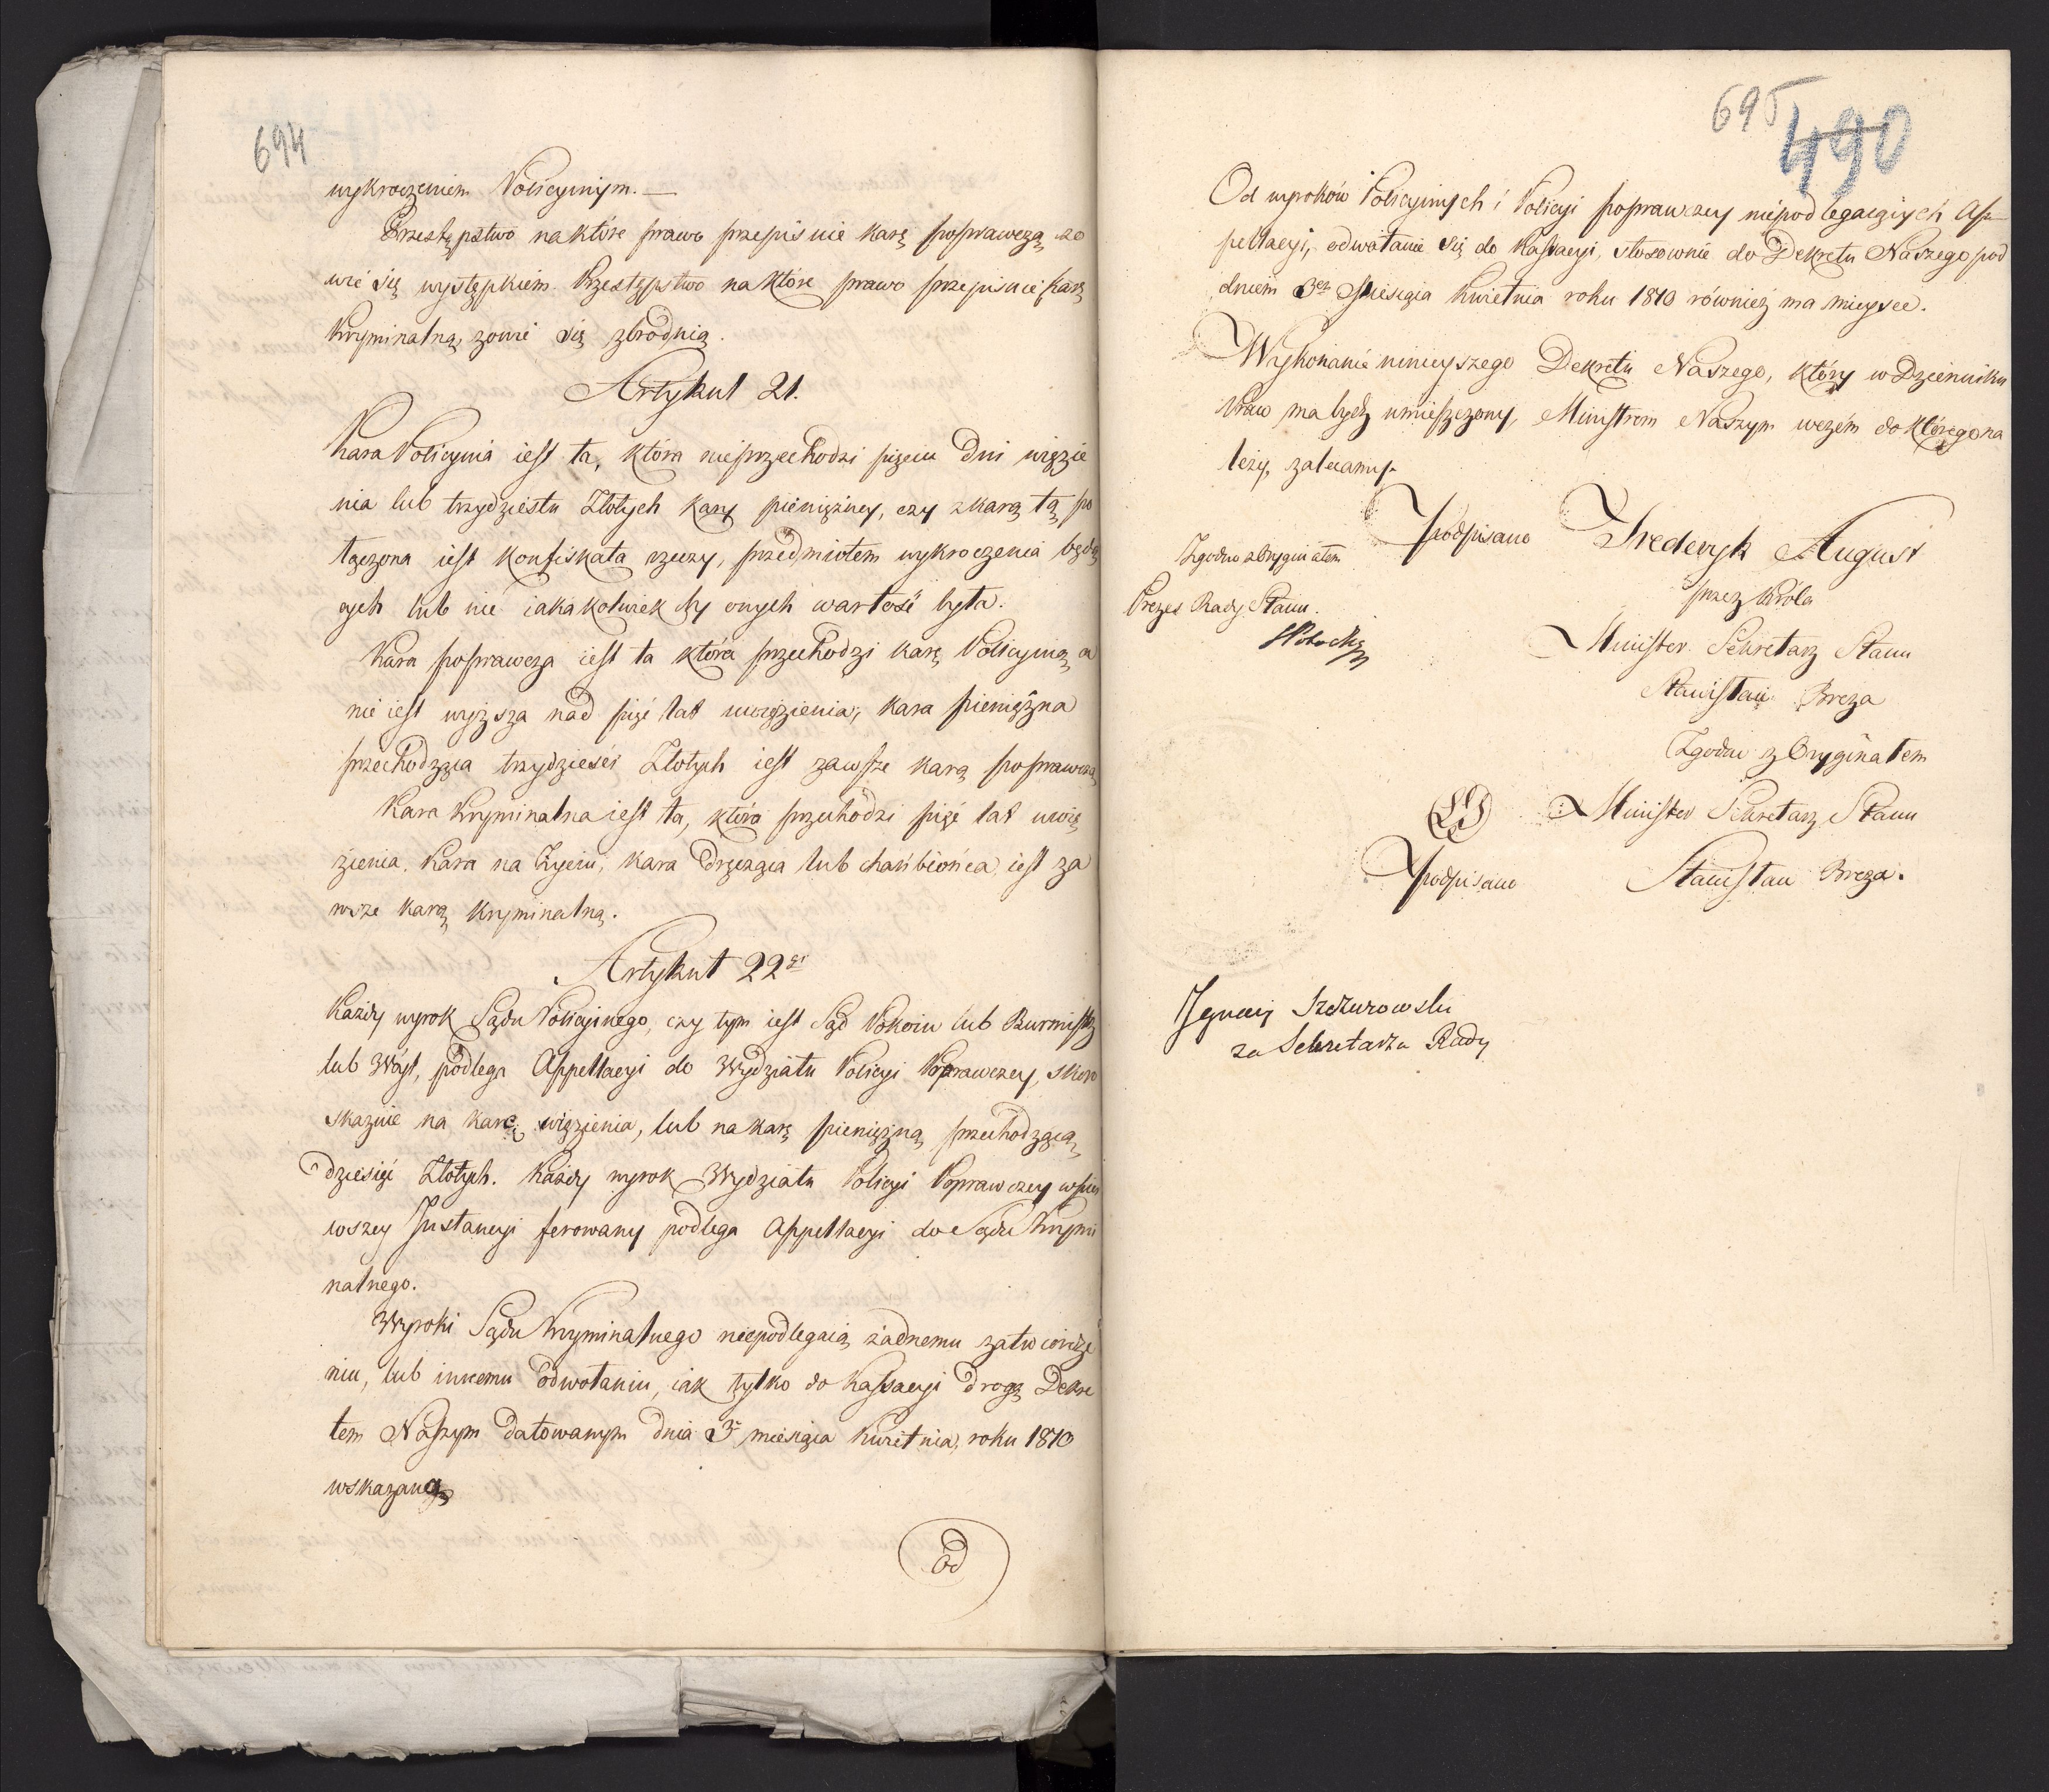 694
wykroczeniem Policyinym. —
Przestępstwo na które prawo przepisuie karę poprawczą zo
wie się występkiem. Przestępstwo na które prawo przepisuie karę
kryminalną, zowie się zbrodnią.
Artykuł 21.
Kara Policyina iest ta, która nieprzechodzi pięciu dni więzie
nia lub trzydziestu Złotych kary pieniężney, czy z karą tą po
łączona iest konfiskata rzeczy, przedmiotem wykroczenia będą
cych lub nie iakakolwiek by onych wartość była.
Kara poprawcza iest ta która przechodzi karę Policyiną a
nie iest wyższa nad pięć lat uwięzienia, kara pieniężna
przechodząca trzydzieści Złotych iest zawsze karą poprawczą
Kara kryminalna iest ta, która przechodzi pięć lat uwię
zienia. Kara na życiu, kara dręcząca lub chańbiońca iest za
wsze karą kryminalną.
Artykuł 22gi
Każdy wyrok Sądu Policyinego, czy tym iest Sąd Pokoiu lub Burmistrz
lub Wóyt, podlega Appellacyi do Wydziału Policyi Poprawczey, skoro
skazuie na karę więzienia, lub na karę pieniężną przechodzącą
dziesięć Złotych. Każdy wyrok Wydziału Policyi Poprawczey w pier
wszey Instancyi ferowany podlega Appellacyi do Sądu Krymi
nalnego.
Wyroki Sądu Kryminalnego niepodlegaią żadnemu zatwierdze
niu, lub innemu odwołaniu, iak tylko do Kassacyi drogą Dekre
tem Naszym datowanym dnia 3. miesiąca kwietnia, roku 1810
wskazaną
od
695
490
Od wyroków Policyinych i Policyi poprawczey niepodlegaiących Ap=
pellacyi, odwołanie się do Kassacyi, stosownie do Dekretu Naszego pod
dniem 3cim Miesiąca Kwietnia roku 1810 również ma mieysce.
Wykonanie ninieyszego Dekretu Naszego, który w Dzienniku
Praw ma bydź umieszczony, Ministrom Naszym wczém do którego na
leży, zalecamy.
podpisano Fryderyk August
Zgodno z Oryginałem
przez Króla
Prezes Rady Stanu.
SPotocki
Minister Sekretarz Stanu
Stanisław Breza
Zgodno z Oryginałem
LS Minister Sekretarz Stanu
podpisano Stanisław Breza.
Ignacy Szczurowski
za Sekretarza Rady